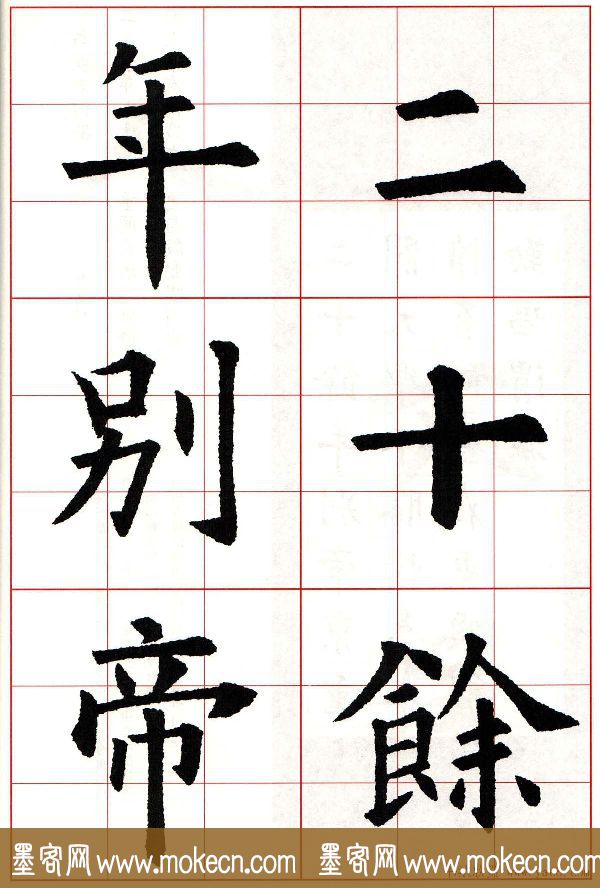 二十餘
年別帝
墨客网 www.mokecn.com 墨客网 www.mokecn.com